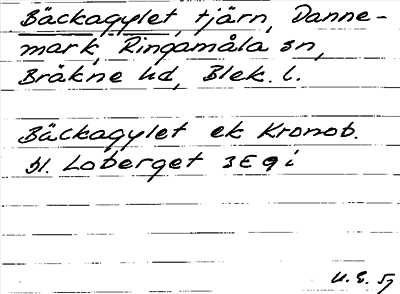 Bäckagylet, tjärn, Danne-
mark, Ringamåla sn,
Bräkne hd, Blek. l.
Bäckagylet ek Kronob.
bl. Loberget 3 E g i
U. E. 57